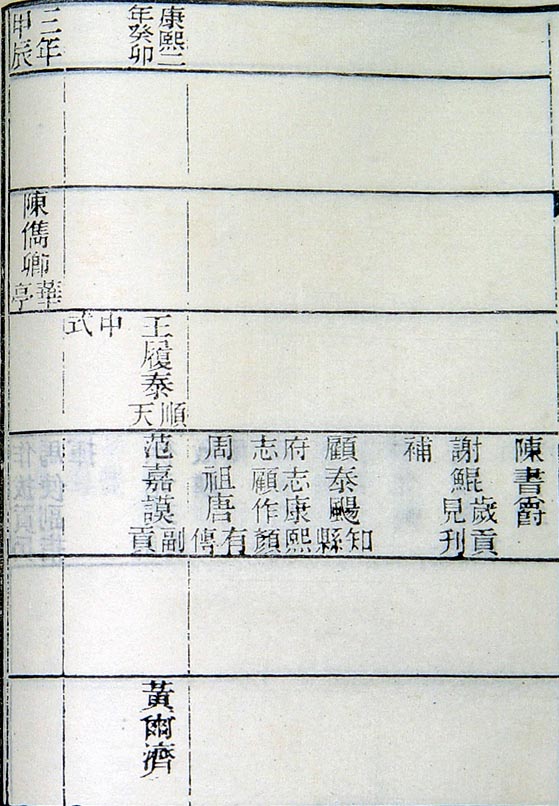 陳書爵
謝鯤
歲貢
見刊
補
顧泰颺
知
縣
府志康熙
志顧作顏
周祖唐
有
傳
康熙二
年癸卯
王履泰
順
天
中
式
范嘉謨
副
貢
黃爾濟
三年
甲辰
陳儁卿
華
亭